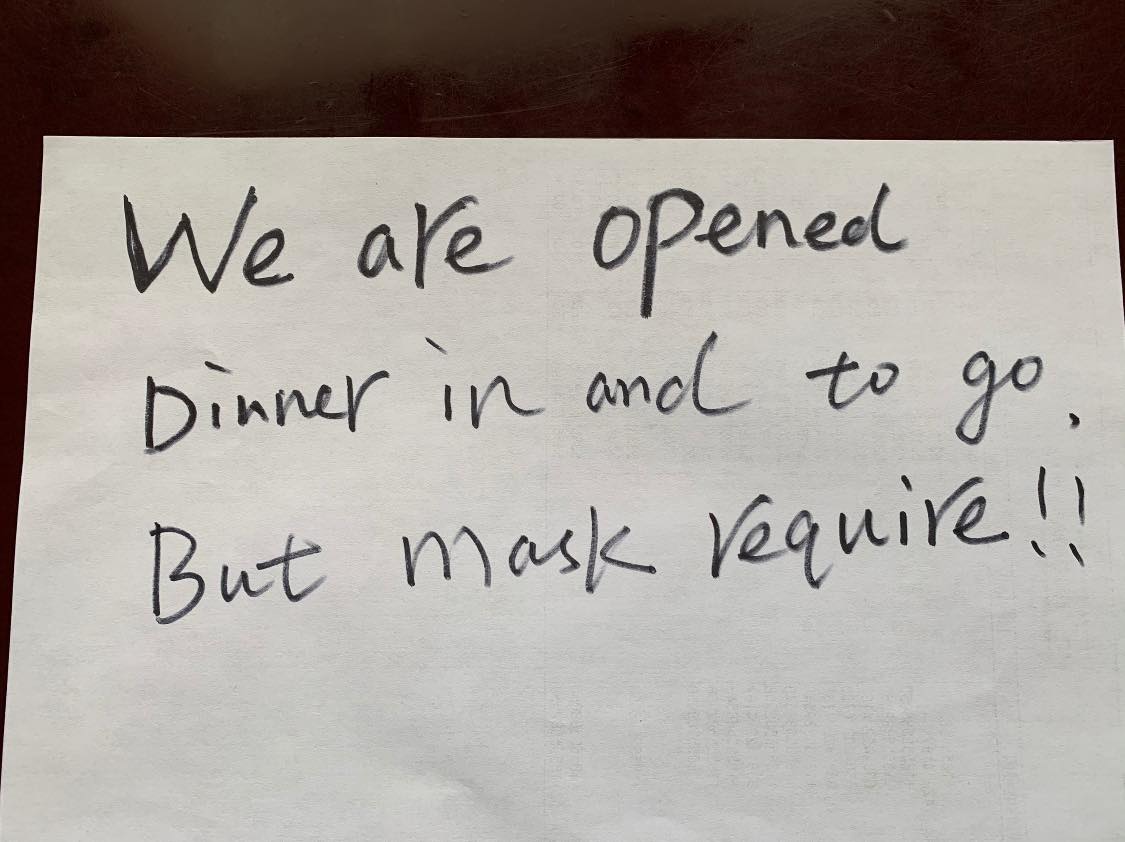 We are opened
Dinner in and to go.
But mask require!!